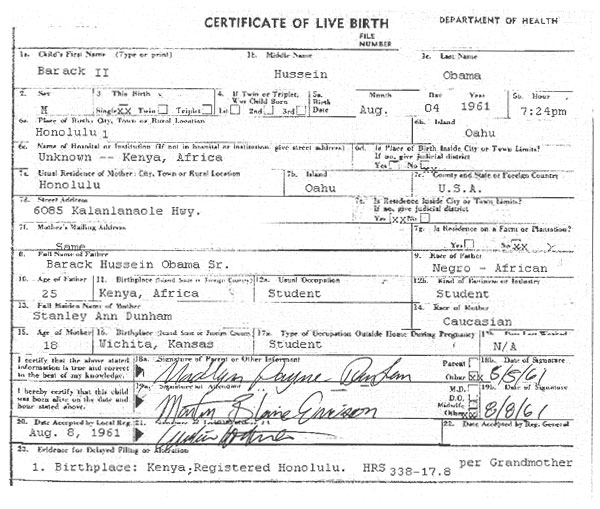 CERTIFICATE OF LIVE BIRTH DEPARTMENT OF HEALTH
FILE NUMBER
1a. Child's First Name (Type or print) 1b. Middle Name 1c. Last Name
Barack II Hussein Obama
2. Sex 3. This Birth 4. If Twin or Triplet, Was Child Born 5a. Birth Date Month Day Year 5b. Hour
M Single XX Twin Triplet 1st 2nd 3rd Aug. 04 1961 7:24pm
6a. Place of Birth: City, Town or Rural Location 6b. Island
Honolulu 1 Oahu
6c. Name of Hospital or Institution (If not in hospital or institution, give street address) 6d. Is Place of Birth Inside City or Town Limits? If no, give judicial district
Unknown -- Kenya, Africa Yes No XX
7a. Usual Residence of Mother: City, Town or Rural Location 7b. Island 7c. County and State or Foreign Country
Honolulu Oahu U.S.A.
7d. Street Address 7e. Is Residence Inside City or Town Limits? If no, give judicial district
6085 Kalanlanaole Hwy. Yes XX No
7f. Mother's Mailing Address 7g. Is Residence on a Farm or Plantation?
Same Yes No XX
8. Full Name of Father 9. Race of Father
Barack Hussein Obama Sr. Negro - African
10. Age of Father 11. Birthplace (Island, State or Foreign Country) 12a. Usual Occupation 12b. Kind of Business or Industry
25 Kenya, Africa Student Student
13. Full Maiden Name of Mother 14. Race of Mother
Stanley Ann Dunham Caucasian
15. Age of Mother 16. Birthplace (Island, State or Foreign Country) 17a. Type of Occupation Outside Home During Pregnancy 17b. Date Last Worked
18 Wichita, Kansas Student N/A
I certify that the above stated information is true and correct to the best of my knowledge. 18a. Signature of Parent or Other Informant Parent Other XX 18b. Date of Signature
8/8/61
I hereby certify that this child was born alive on the date and hour stated above. 19a. Signature of Attendant M.D. D.O. Midwife Other XX 19b. Date of Signature
8/8/61
20. Date Accepted by Local Reg. 21. 22. Date Accepted by Reg. General
Aug. 8, 1961
23. Evidence for Delayed Filing or Alteration
1. Birthplace: Kenya; Registered Honolulu. HRS 338-17.8 per Grandmother